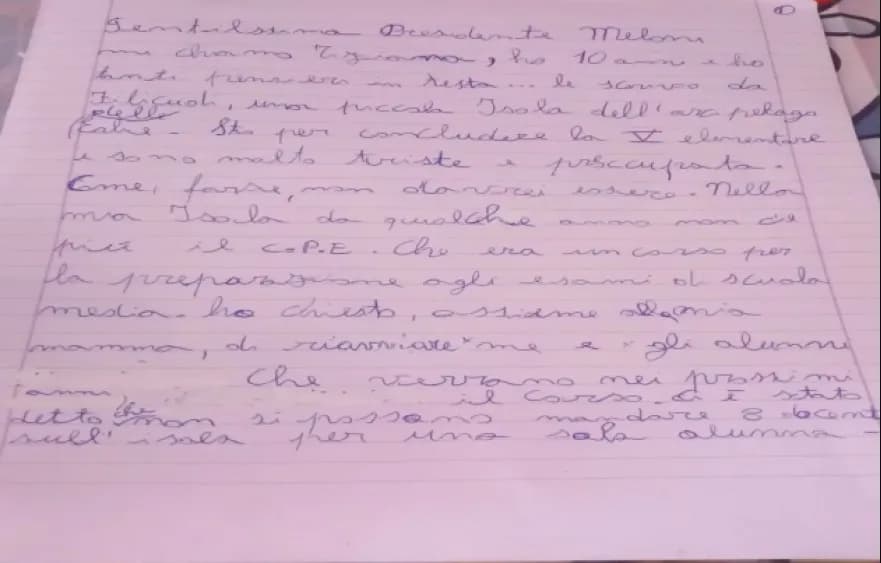 ①
Gentilssima Presidente Meloni
mi chiamo Tiziana, ho 10 anni e ho
tanti pensieri in testa... le scrivo da
Filicudi, una piccola Isola dell'arcipelago
delle
Eolie - Sto per concludere la V elementare
e sono molto triste e preoccupata.
Come, forse, non dovrei essere. Nella
mia Isola da qualche anno non c'è
più il C.P.E. Che era un corso per
la preparazione agli esami di scuola
media. ho chiesto, assieme alla mia
mamma, di riavviare me e gli alunni
Che verrano nei prossimi
anni, il corso. Ci è stato
detto che non si possono mandare 8 docenti
sull'isola per una sola alunna -